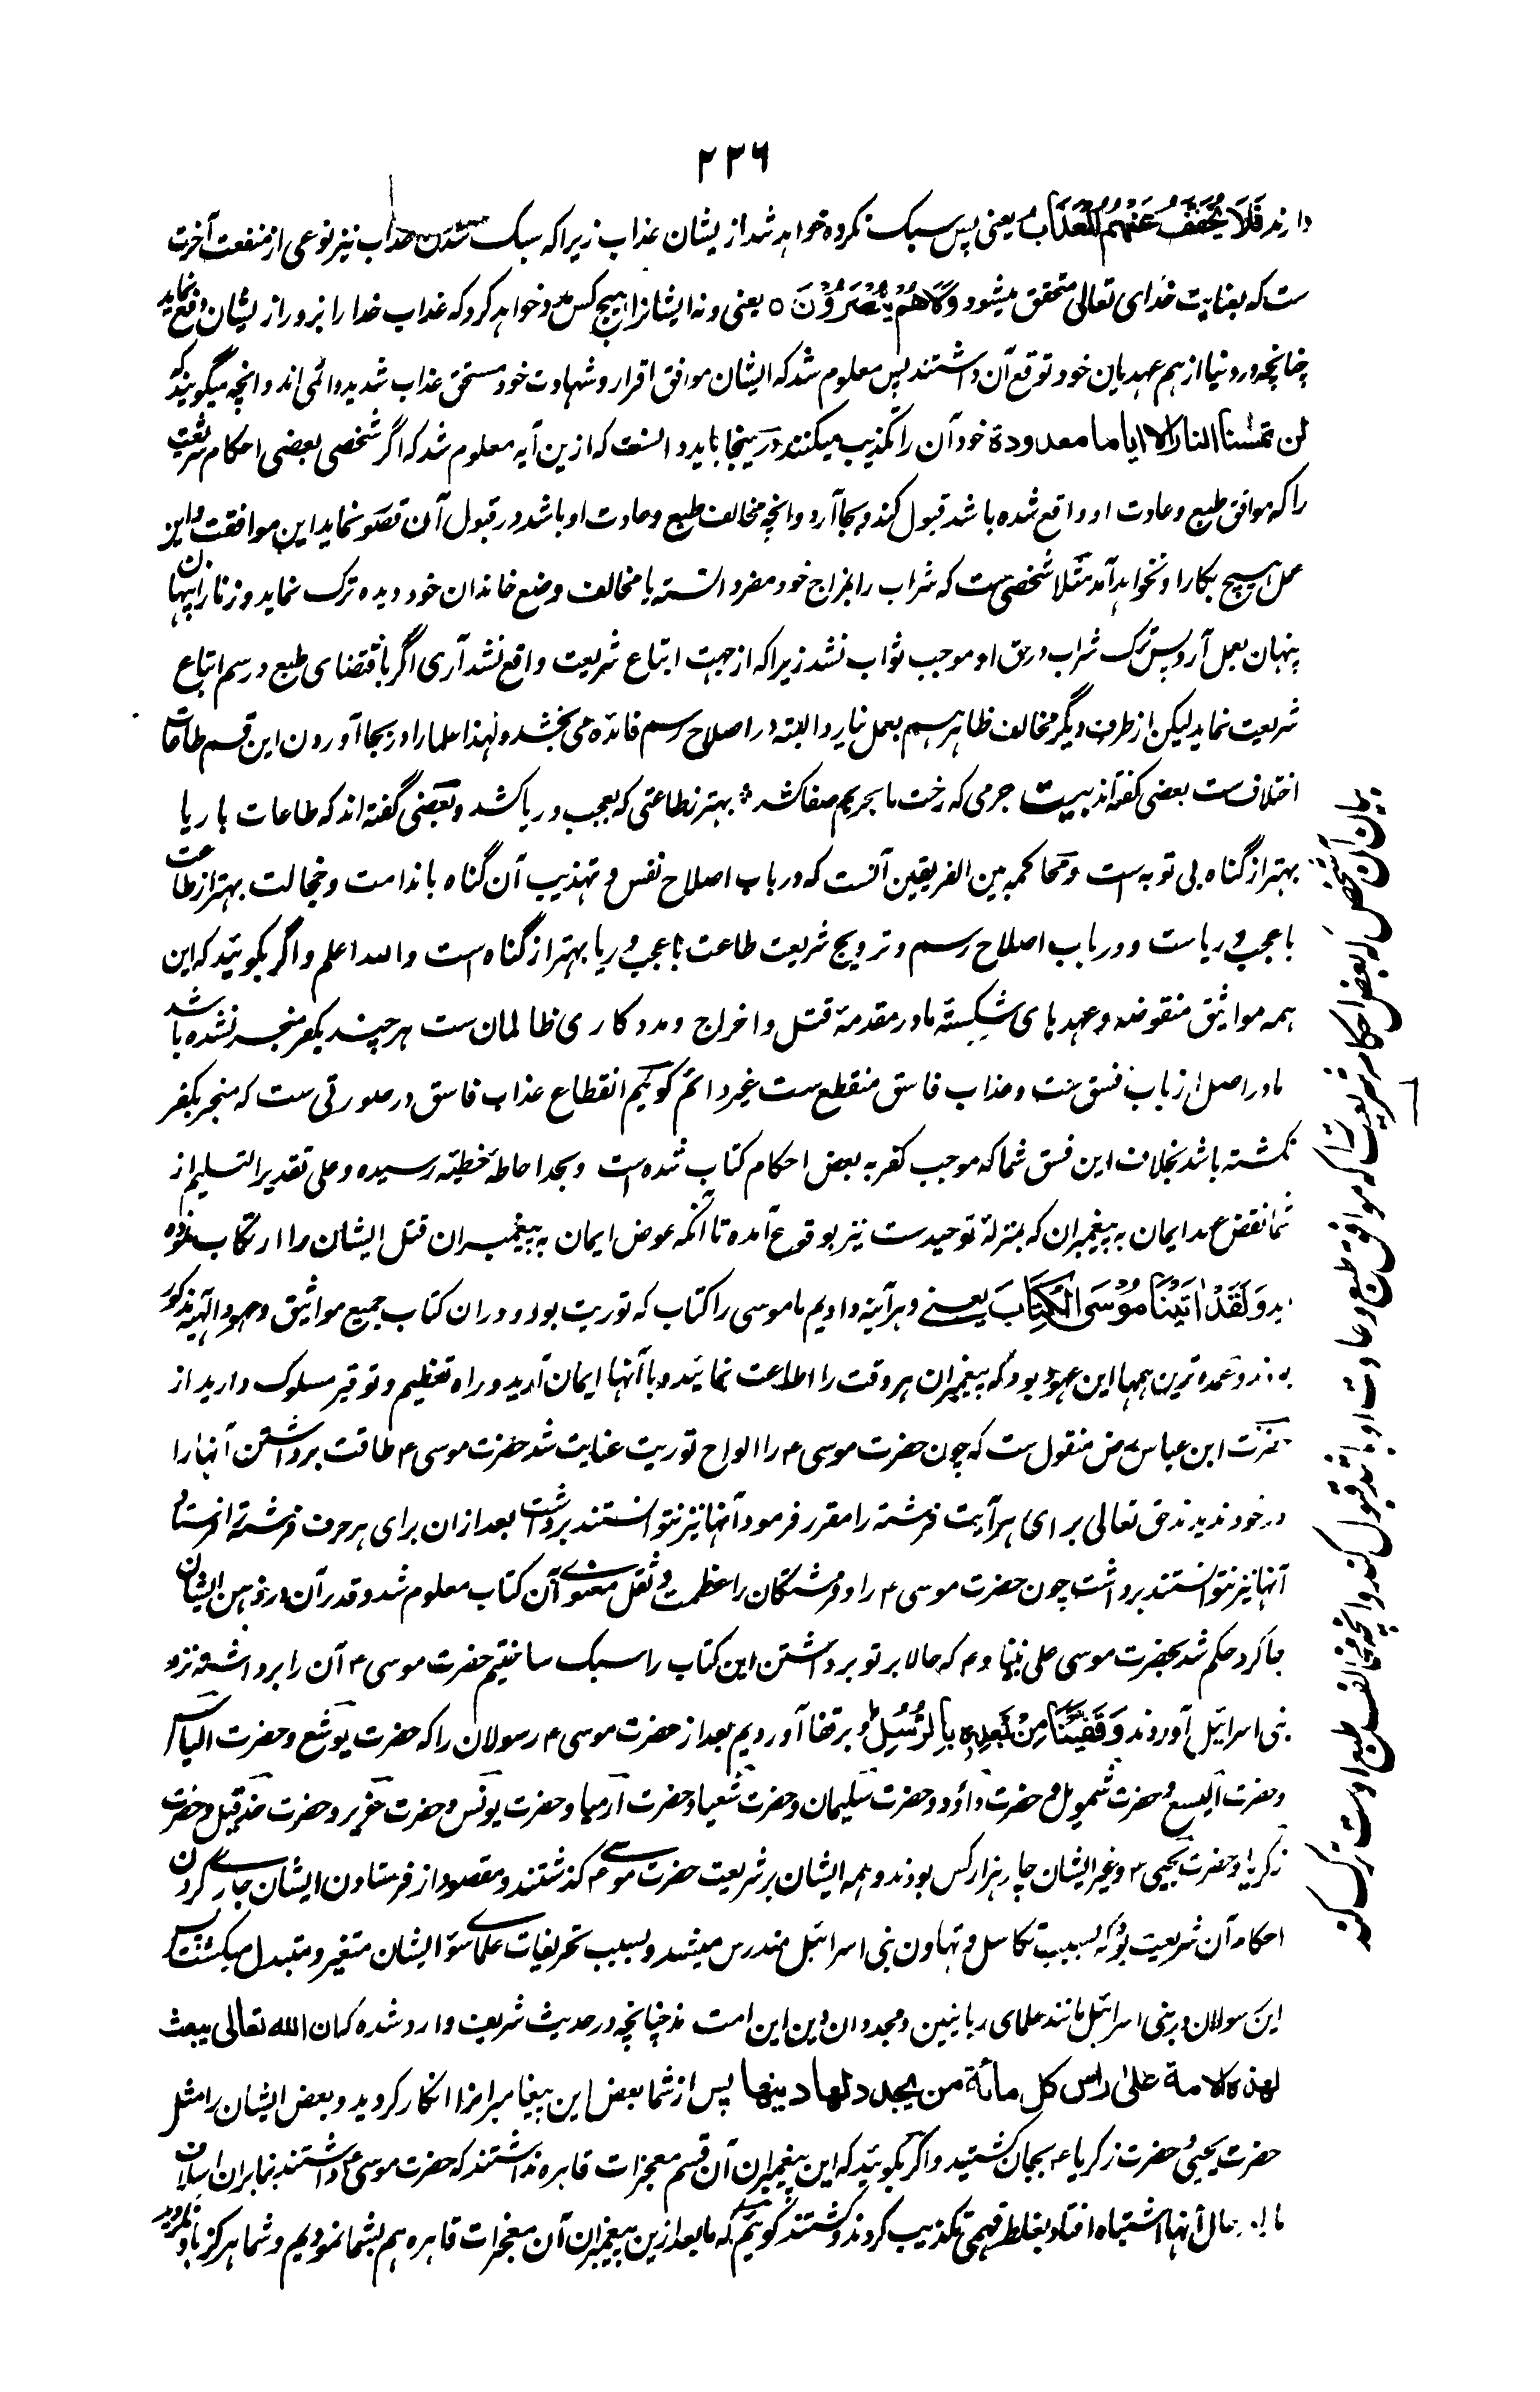 ۲۲۶
دارند فَلَا يُخَفَّفُ عَنْهُمُ الْعَذَابُ یعنی پس سبک نکرده خواهد شد از یشان عذاب زیرا که سبک شدن عذاب نیز نوعی از منفعت آخرت
ست که بعنایت خدای تعالی متحقق میشود وَلَا هُمْ يُنْصَرُوْنَ ۝ یعنی و نه ایشانرا هیچ کس مدد خواهد کرد که عذاب خدا را بزور از یشان دفع نماید
چنانچه در دنیا از هم عهدیان خود توقع آن داشتند پس معلوم شد که ایشان موافق اقرار و شهادت خود مستحق عذاب شدید دائمی اند و انچه میگویند که
لن تمسنا النار الا ایاما معدودة خود آن را تکذیب میکنند در ینجا باید دانست که ازین آیه معلوم شد که اگر شخصی بعضی احکام شریعت
را که موافق طبع و عادت او واقع شده باشد قبول کند و بجا آرد و انچه مخالف طبع و عادت او باشد در قبول آن قصور نماید این موافقت و این
عمل هیچ بکار او نخواهد آمد مثلا شخصی ست که شراب را بمزاج خود مضر دانسته یا مخالف وضع خاندان خود دیده ترک نماید و زنا را پنهان
پنهان بعمل آرد پس ترک شراب در حق او موجب ثواب نشد زیرا که از جهت اتباع شریعت واقع نشد آری اگر باقتضای طبع و رسم اتباع
شریعت نماید لیکن از طرف دیگر مخالف ظاهر هم بعمل نیارد البته در اصلاح رسم فائده می بخشد و لهذا علما را در بجا آوردن این قسم طاعات
اختلاف ست بعضی گفته اند بیت جرمی که رخت ما بحریم صفا کشد ؞ بهتر ز طاعتی که بعجب و ریا کشد و بعضی گفته اند که طاعات با ریا
بهتر از گناه بی توبه است و محاکمه بین الفریقین آنست که در باب اصلاح نفس و تهذیب آن گناه با ندامت و خجالت بهتر از طاعت
با عجب و ریاست و در باب اصلاح رسم و ترویج شریعت طاعت با عجب و ریا بهتر از گناه است والله اعلم و اگر بگوئید که این
همه مواثیق منقوضه و عهدهای شکسته ما در مقدمهٔ قتل و اخراج و مددکاری ظالمان ست هر چند بکفر منجر نشده باشد
ما در اصل از باب فسق ست و عذاب فاسق منقطع ست غیر دائم گوئیم انقطاع عذاب فاسق در صورتی ست که منجر بکفر
نگشته باشد بخلاف این فسق شما که موجب کفر به بعض احکام کتاب شده است و بحد احاطهٔ خطیئه رسیده و علی تقدیر التسلیم از
شما نقض عهد ایمان به پیغمبران که بمنزلهٔ توحید ست نیز بوقوع آمده تا آنکه عوض ایمان به پیغمبران قتل ایشان را ارتکاب نموده
اید وَلَقَدْ اٰتَيْنَا مُوْسَى الْكِتَابَ یعنے و هر آئینه دادیم ما موسی را کتاب که توریت بود و دران کتاب جمیع مواثیق و عهود الٰهیه مذکور
بودند و عمده ترین همها این عهود بود که پیغمبران هر وقت را اطاعت نمائید و با آنها ایمان آرید و راه تعظیم و توقیر مسلوک دارید از
حضرت ابن عباس رض منقول ست که چون حضرت موسی ۴ را الواح توریت عنایت شد حضرت موسی ۴ طاقت برداشتن آنها را
در خود ندیدند حق تعالی برای هر آیت فرشته را مقرر فرمود آنها نیز نتوانستند برداشت بعد ازان برای هر حرف فرشته فرستاد
آنها نیز نتوانستند برداشت چون حضرت موسی ۴ را و فرشتگان را عظمت و ثقل معنوے آن کتاب معلوم شد و قدر آن در ذهن ایشان
جا کرد حکم شد بحضرت موسی علی نبینا و ۴ که حالا بر تو برداشتن این کتاب را سبک ساختیم حضرت موسی ۴ آن را برداشته نزد
بنی اسرائیل آوردند وَقَفَّيْنَا مِنْ بَعْدِهٖ بِالرُّسُلِ و بر قفا آوردیم بعد از حضرت موسی ۴ رسولان را که حضرت یوشع و حضرت الیاس
و حضرت الیسع و حضرت شمویل و حضرت داؤد و حضرت سلیمان و حضرت شعیا و حضرت ارمیا و حضرت یونس و حضرت عزیر و حضرت حزقیل و حضرت
زکریا و حضرت یحیی ۴ و غیر ایشان چار هزار کس بودند و همه ایشان بر شریعت حضرت موسے ۴ گذشتند و مقصود از فرستادن ایشان جارے کردن
احکام آن شریعت بود که بسبب تکاسل و تهاون بنی اسرائیل مندرس میشد و بسبب تحریفات علماے سوء ایشان متغیر و متبدل میگشت پس
این رسولان در بنی اسرائیل مانند علمای ربانیین و مجددان دین این امت اند چنانچه در حدیث شریف وارد شده که ان الله تعالی یبعث
لهذه الامة علی راس کل مائة من یجدد لها دینها پس از شما بعض این پیغامبرانرا انکار کردید و بعض ایشان را مثل
حضرت یحیی و حضرت زکریا ۴ بجان کشتید و اگر بگوئید که این پیغمبران آن قسم معجزات قاهره نداشتند که حضرت موسی ۴ داشتند بنا بران اسلاف
ما را در حال آنها اشتباه افتاد بغلط فهمی تکذیب کردند و کشتند گوئیم که ما بعد ازین پیغمبران آن معجزات قاهره هم بشما نمودیم و شما هرگز باور نکردید
بیان آن شخص که بعض احکام شریعت را که موافق طبع و عادت او باشد قبول کند و انچه مخالف طبع اوست ترک کند